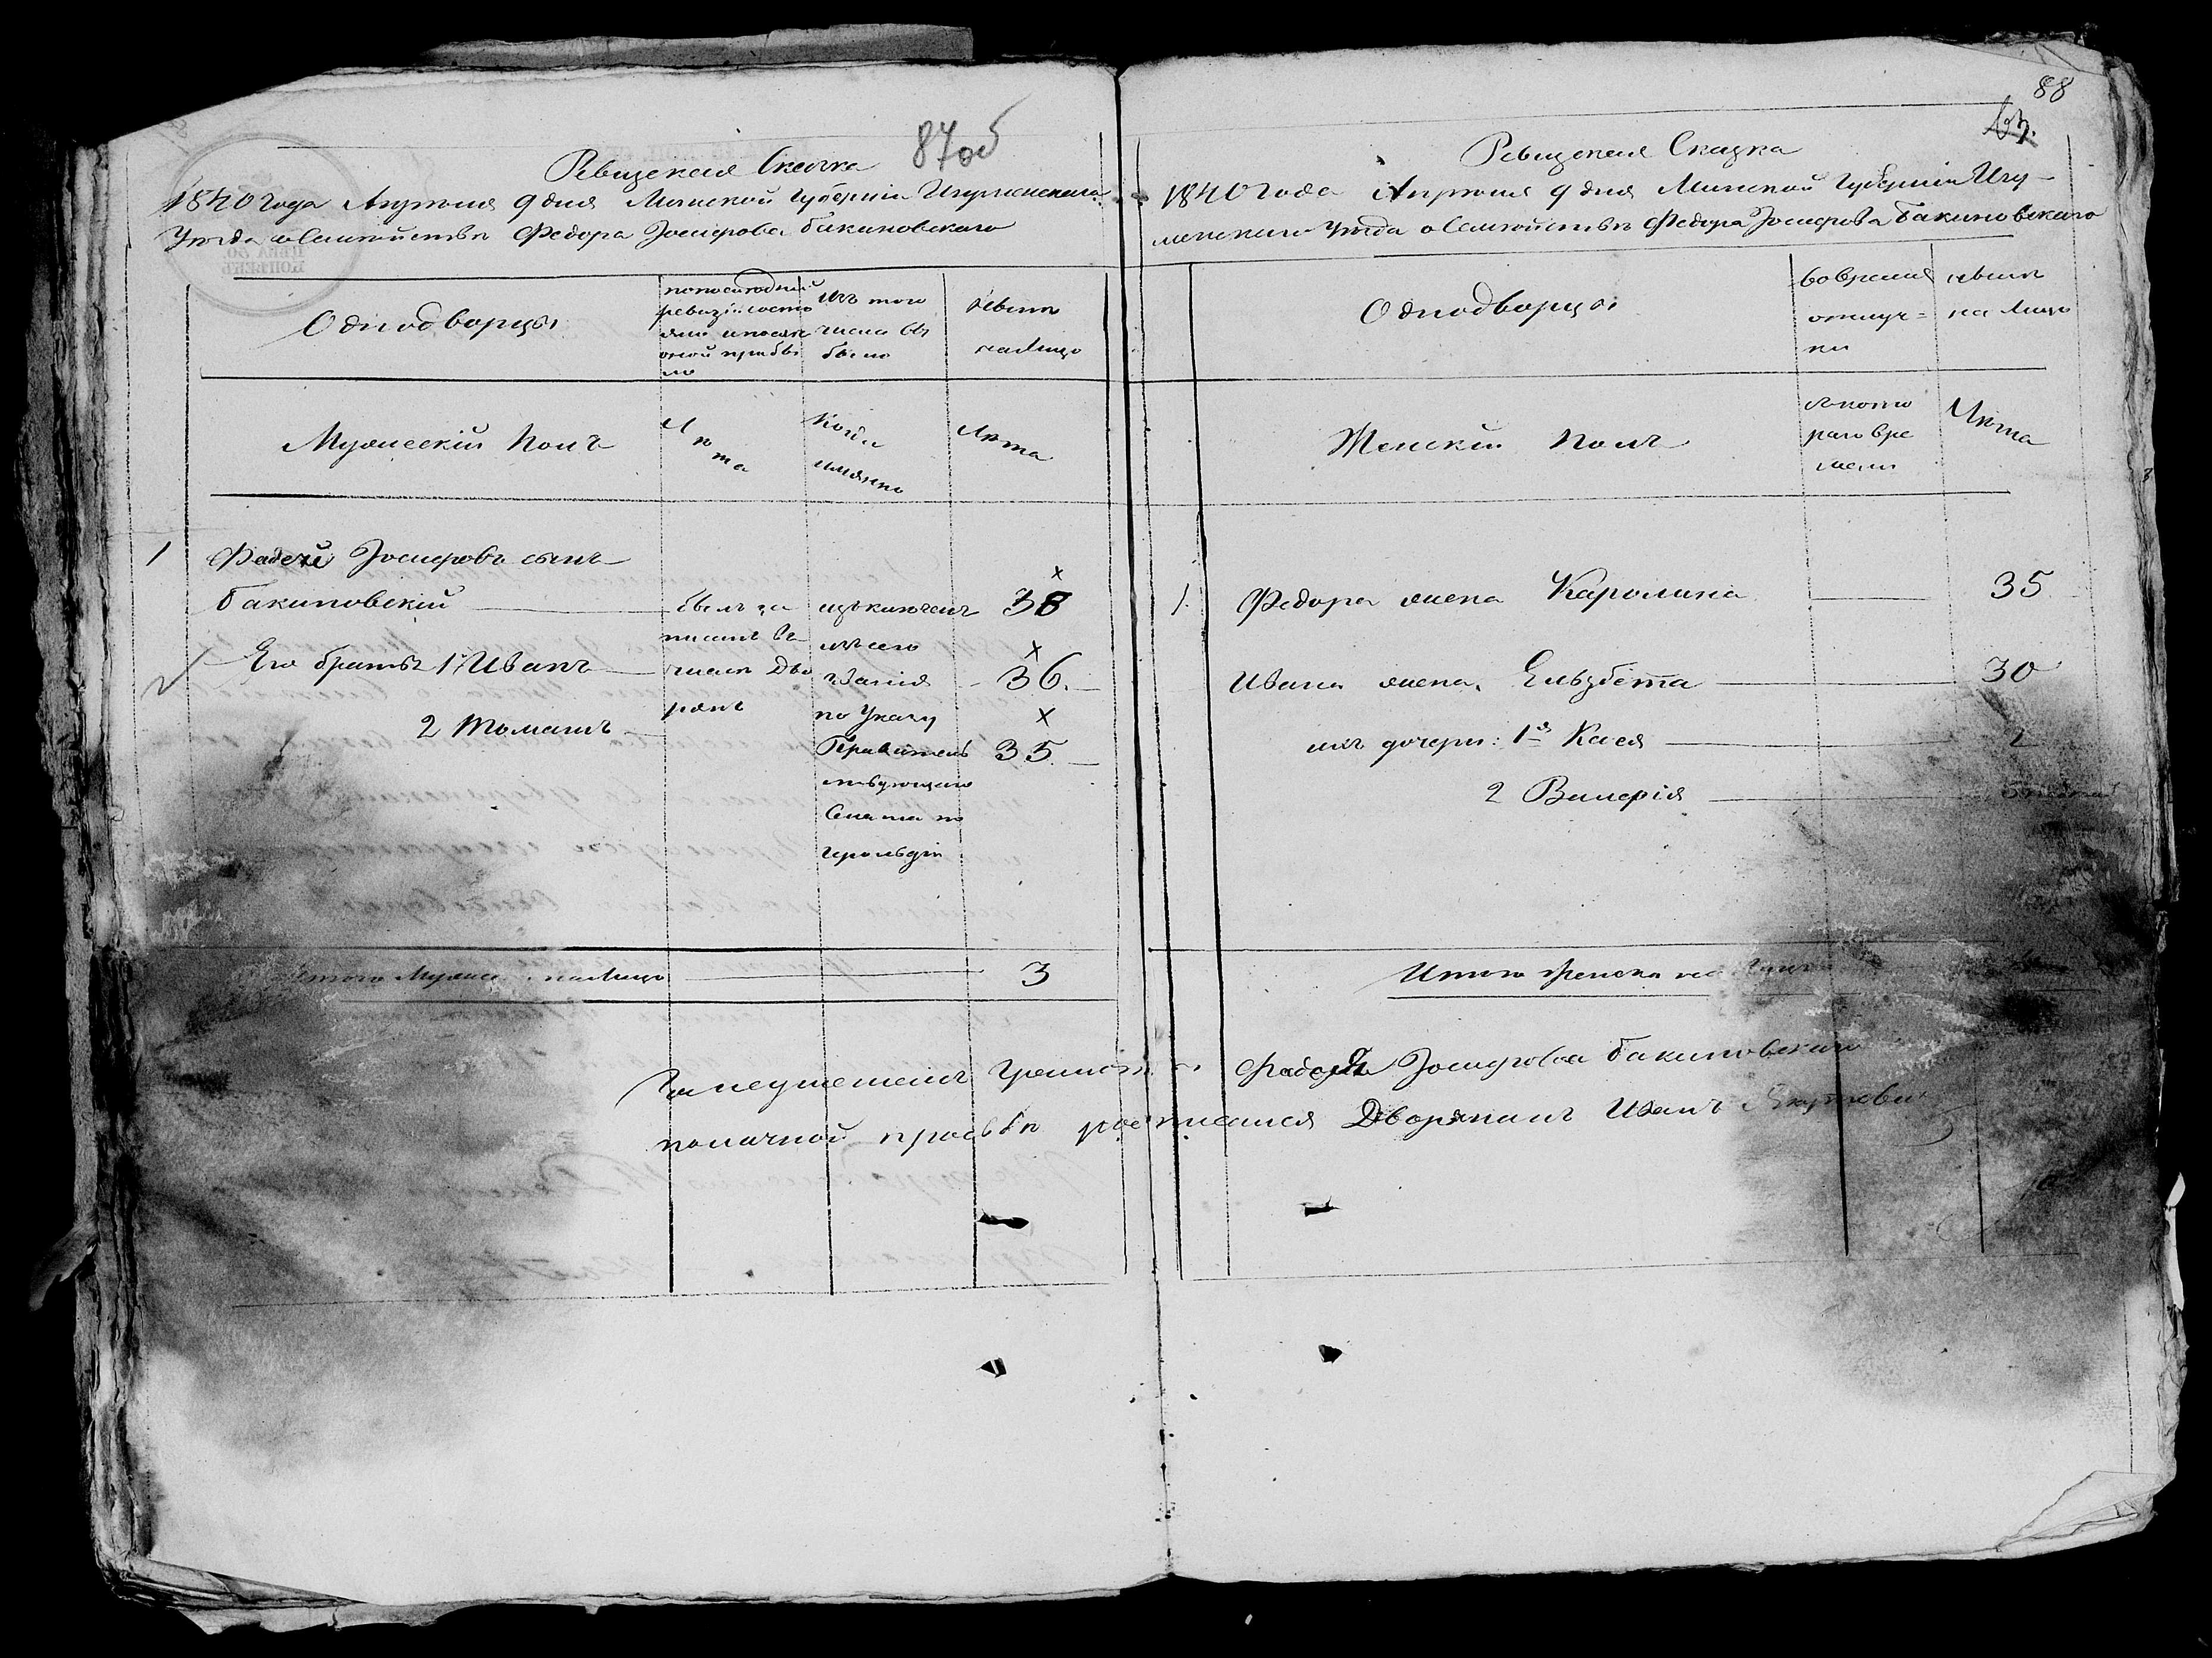 87 об
Ревизская Сказка
1840 года Апреля 9 дня Минской губернии Игуменскаго
Уезда о Семействе Федора Іосифова Бакиновскаго
Однодворцы
по последней ревизіи состояли и после оной прибыло
Изъ того числа выбыло
Ныне налицо
Мужескій Полъ
Лета
Когда имянно
Лета
1 Фадей Іосифовъ сынъ
Бакиновскій
былъ записанъ въ числе Дворянъ
изключенъ изъ сего званія по Указу Правительствующаго Сената по герольдіи
38
2 Его братья 1 Иванъ 36.
2 Томашъ 35.
Итого Мужеска налицо 3
88
Ревизская Сказка
1840 года Апреля 9 дня Минской губерніи Игу-
менскаго Уезда о Семействе Федора Іосифова Бакиновскаго
Однодворцы
во временной отлучке
ныне на лицо
Женскій Полъ
съ котораго времени
Лета
1. Федора жена Каролина 35
Ивана жена Ельзбета 30
ихъ дочери: 1я Кася 2
2 Валерія
Итого Женска на лицо
За неуменіемъ Грамоты Фадея Іосифова Бакиновскаго
по личной просьбе росписался Дворянинъ Иванъ